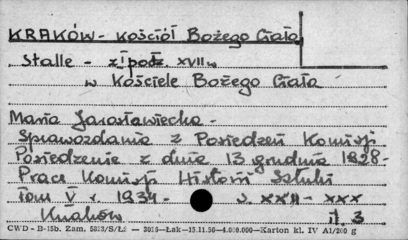 KRAKÓW - Kościół Bożego Ciała
Stalle - z I poł. XVII w.
w Kościele Bożego Ciała
Maria Jarosławiecka -
Sprawozdania z Posiedzeń Komisji
Posiedzenie z dnia 13 grudnia 1928 -
Prace Komisji Historii Sztuki
tom V r. 1934 - s. XXIX - XXX
Kraków il. 3
CWD - B-15b. Zam. 5823/S/Łi — 3016—Łak—15.11.50—4.000.000—Karton kl. IV A1/200 g